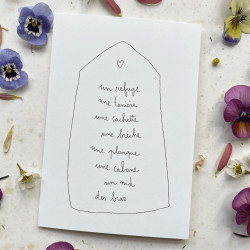 un refuge
une tanière
une cachette
une brèche
une planque
une cabane
un nid
des bras